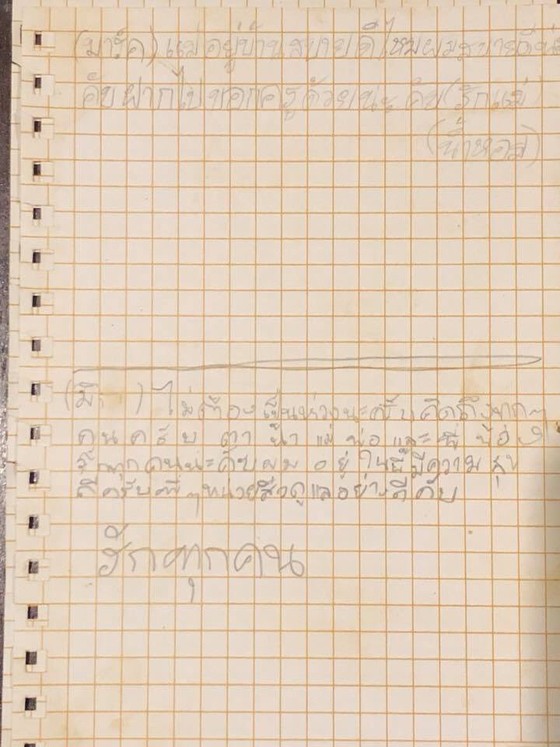 (มาร์ค) แม่อยู่บ้านสบายดีไหมผมสบายดี
คับฝากไปบอกครูด้วยนะ คับ(รักแม่
(น้ำหอม)
(มิ ) ไม่ต้องเป็นห่วงนะครับคิดถึงทุกๆ
คนครับ ตา น้า แม่ พ่อ และ พี่ น้อง
รักทุกคนนะคับผม อยู่ ในนี้มีความ สุข
ดีครับพี่ๆหน่วยซีลดูแลอย่างดีคับ
รักทุกคน